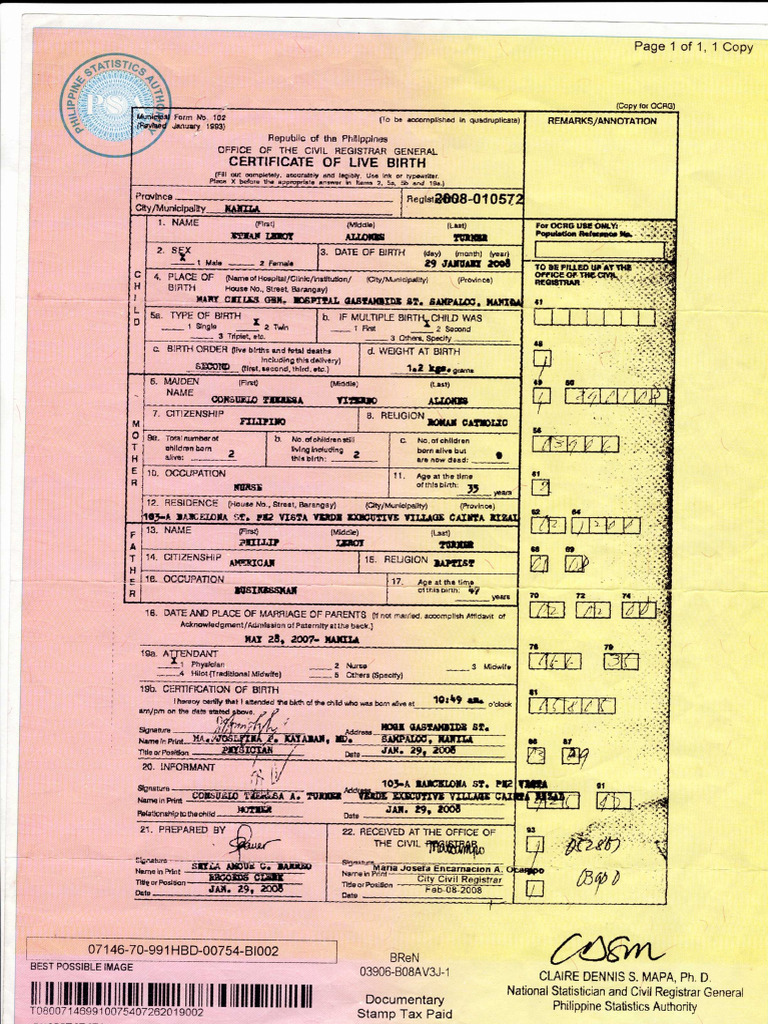 Page 1 of 1, 1 Copy
PHILIPPINE STATISTICS AUTHORITY
PSA
(Copy for OCRG)
Municipal Form No. 102
(To be accomplished in quadruplicate)
REMARKS/ANNOTATION
(Revised January 1993)
Republic of the Philippines
OFFICE OF THE CIVIL REGISTRAR GENERAL
CERTIFICATE OF LIVE BIRTH
(Fill out completely, accurately and legibly. Use ink or typewriter.
Place X before the appropriate answer in Items 2, 5a, 5b and 19a.)
Province
Regist 2008-010572
City/Municipality MANILA
1. NAME (First) (Middle) (Last)
ETHAN LEROY ALLONES TURNER
For OCRG USE ONLY:
Population Reference No.
2. SEX
X 1 Male 2 Female
3. DATE OF BIRTH (day) (month) (year)
29 JANUARY 2008
TO BE FILLED UP AT THE
OFFICE OF THE CIVIL
REGISTRAR
CHILD
4. PLACE OF BIRTH (Name of Hospital/Clinic/Institution/ (City/Municipality) (Province)
House No., Street, Barangay)
MARY CHILES GEN. HOSPITAL GASTAMBIDE ST. SAMPALOC, MANILA
5a. TYPE OF BIRTH
1 Single X 2 Twin
3 Triplet, etc.
b. IF MULTIPLE BIRTH, CHILD WAS
1 First X 2 Second
3 Others, Specify
41
c. BIRTH ORDER (live births and fetal deaths
including this delivery)
SECOND (first, second, third, etc.)
d. WEIGHT AT BIRTH
1.2 kgs. grams
48
MOTHER
6. MAIDEN NAME (First) (Middle) (Last)
CONSUELO THERESA VITERBO ALLONES
49 50
7. CITIZENSHIP
FILIPINO
8. RELIGION
ROMAN CATHOLIC
9a. Total number of
children born
alive: 2
b. No. of children still
living including
this birth: 2
c. No. of children
born alive but
are now dead: 0
56
10. OCCUPATION
NURSE
11. Age at the time
of this birth: 35 years
61
12. RESIDENCE (House No., Street, Barangay) (City/Municipality) (Province)
103-A BARCELONA ST. PH2 VISTA VERDE EXECUTIVE VILLAGE CAINTA RIZAL
62 64
FATHER
13. NAME (First) (Middle) (Last)
PHILLIP LEROY TURNER
14. CITIZENSHIP
AMERICAN
15. RELIGION
BAPTIST
68 69
16. OCCUPATION
BUSINESSMAN
17. Age at the time
of this birth: 47 years
70 72 74
18. DATE AND PLACE OF MARRIAGE OF PARENTS (If not married, accomplish Affidavit of
Acknowledgment/Admission of Paternity at the back.)
MAY 28, 2007- MANILA
19a. ATTENDANT
X 1 Physician 2 Nurse 3 Midwife
4 Hilot (Traditional Midwife) 5 Others (Specify)
76 79
19b. CERTIFICATION OF BIRTH
I hereby certify that I attended the birth of the child who was born alive at 10:49 am. o'clock
am/pm on the date stated above.
81
Signature
Name in Print MA. JOSEFINA P. KATABAN, MD.
Title or Position PHYSICIAN
Address MCGH GASTAMBIDE ST.
SAMPALOC, MANILA
Date JAN. 29, 2008
86 87
20. INFORMANT
Signature
Name in Print CONSUELO THERESA A. TURNER
Relationship to the child MOTHER
Address 103-A BARCELONA ST. PH2 VISTA
VERDE EXECUTIVE VILLAGE CAINTA RIZAL
Date JAN. 29, 2008
91
21. PREPARED BY
Signature
Title or Position RECORDS CLERK
Date JAN. 29, 2008
22. RECEIVED AT THE OFFICE OF
THE CIVIL REGISTRAR
Signature
Name in Print Maria Josefa Encarnacion A. Ocampo
Title or Position City Civil Registrar
Date Feb-08-2008
93
07146-70-991HBD-00754-BI002
BEST POSSIBLE IMAGE
T080071469910075407262019002
BReN
03906-B08AV3J-1
Documentary
Stamp Tax Paid
CLAIRE DENNIS S. MAPA, Ph. D.
National Statistician and Civil Registrar General
Philippine Statistics Authority